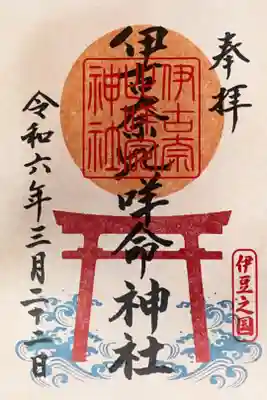 奉拝
伊豆之国
伊古奈比咩命神社
伊古奈
比咩命
神社
令和六年三月二十二日